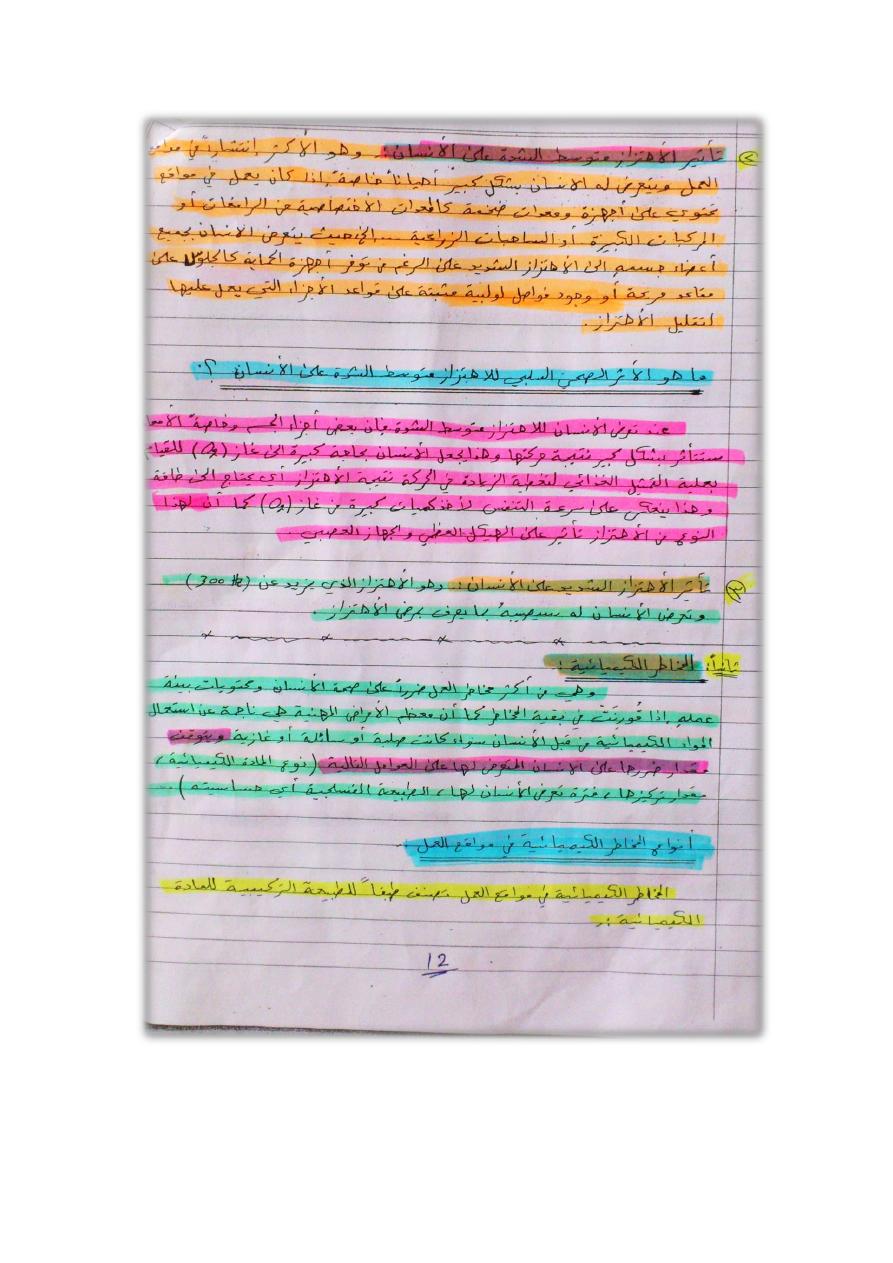 ٢ تأثير الأهتزاز متوسط الشدة على الأنسان :. وهو الأكثر إنتشاراً في
العمل ويتعرض له الانسان بشكل كبير أحياناً خاصة إذا كان يعمل في مواقع
تحتوي على أجهزة ومعدات ضخمة كالمعدات الاختصاصية من الرافعات أو
المركبات الكبيرة أو الساحبات الزراعية ... الخ حيث يتعرض الانسان بجميع
أعضاء جسمه الى الأهتزاز الشديد على الرغم من توفر أجهزة الحماية كالجلوس على
مقاعد مريحة أو وجود فواصل لولبية مثبتة على قواعد الأجزاء التي يعمل عليها
لتقليل الأهتزاز .
ما هو الأثر الصحي السلبي للاهتزاز متوسط الشدة على الأنسان ؟.
عند تعرض الأنسان للاهتزاز متوسط الشدة فإن بعض أجزاء الجسم وخاصة
ستتأثر بشكل كبير نتيجة حركتها وهذا يجعل الأنسان بحاجة كبيرة الى غاز (O₂) للقيام
بعملية التمثيل الغذائي لتغطية الزيادة في الحركة نتيجة الأهتزاز أي يحتاج الى طاقة
وهذا ينعكس على سرعة التنفس لأخذ كميات كبيرة من غاز (O₂) كما أن لهذا
النوع من الأهتزاز تأثير على الهيكل العظمي والجهاز العصبي .
٣ تأثير الأهتزاز الشديد على الأنسان :. وهو الأهتزاز الذي يزيد عن (300 Hz)
وتعرض الأنسان له سيصيبه بما يعرف بمرض الأهتزاز .
ثانياً: المخاطر الكيميائية :.
وهي من أكثر مخاطر العمل ضرراً على صحة الأنسان ومحتويات بيئة
عمله إذا قُورنَتْ في بقية المخاطر كما أن معظم الأمراض المهنية هي ناجمة عن استعمال
المواد الكيميائية من قبل الأنسان سواء كانت صلبة أو سائلة أو غازية ويتوقف
مقدار ضررها على الانسان المتعرض لها على العوامل التالية (نوع المادة الكيميائية ،
مقدار تركيزها ، فترة تعرض الأنسان لها ، الطبيعة الفسلجية أي حساسيته ) ..
أنواع المخاطر الكيميائية في مواقع العمل :.
المخاطر الكيميائية في مواقع العمل تصنف طبقاً للطبيعة التركيبية للمادة
الكيميائية :.
12